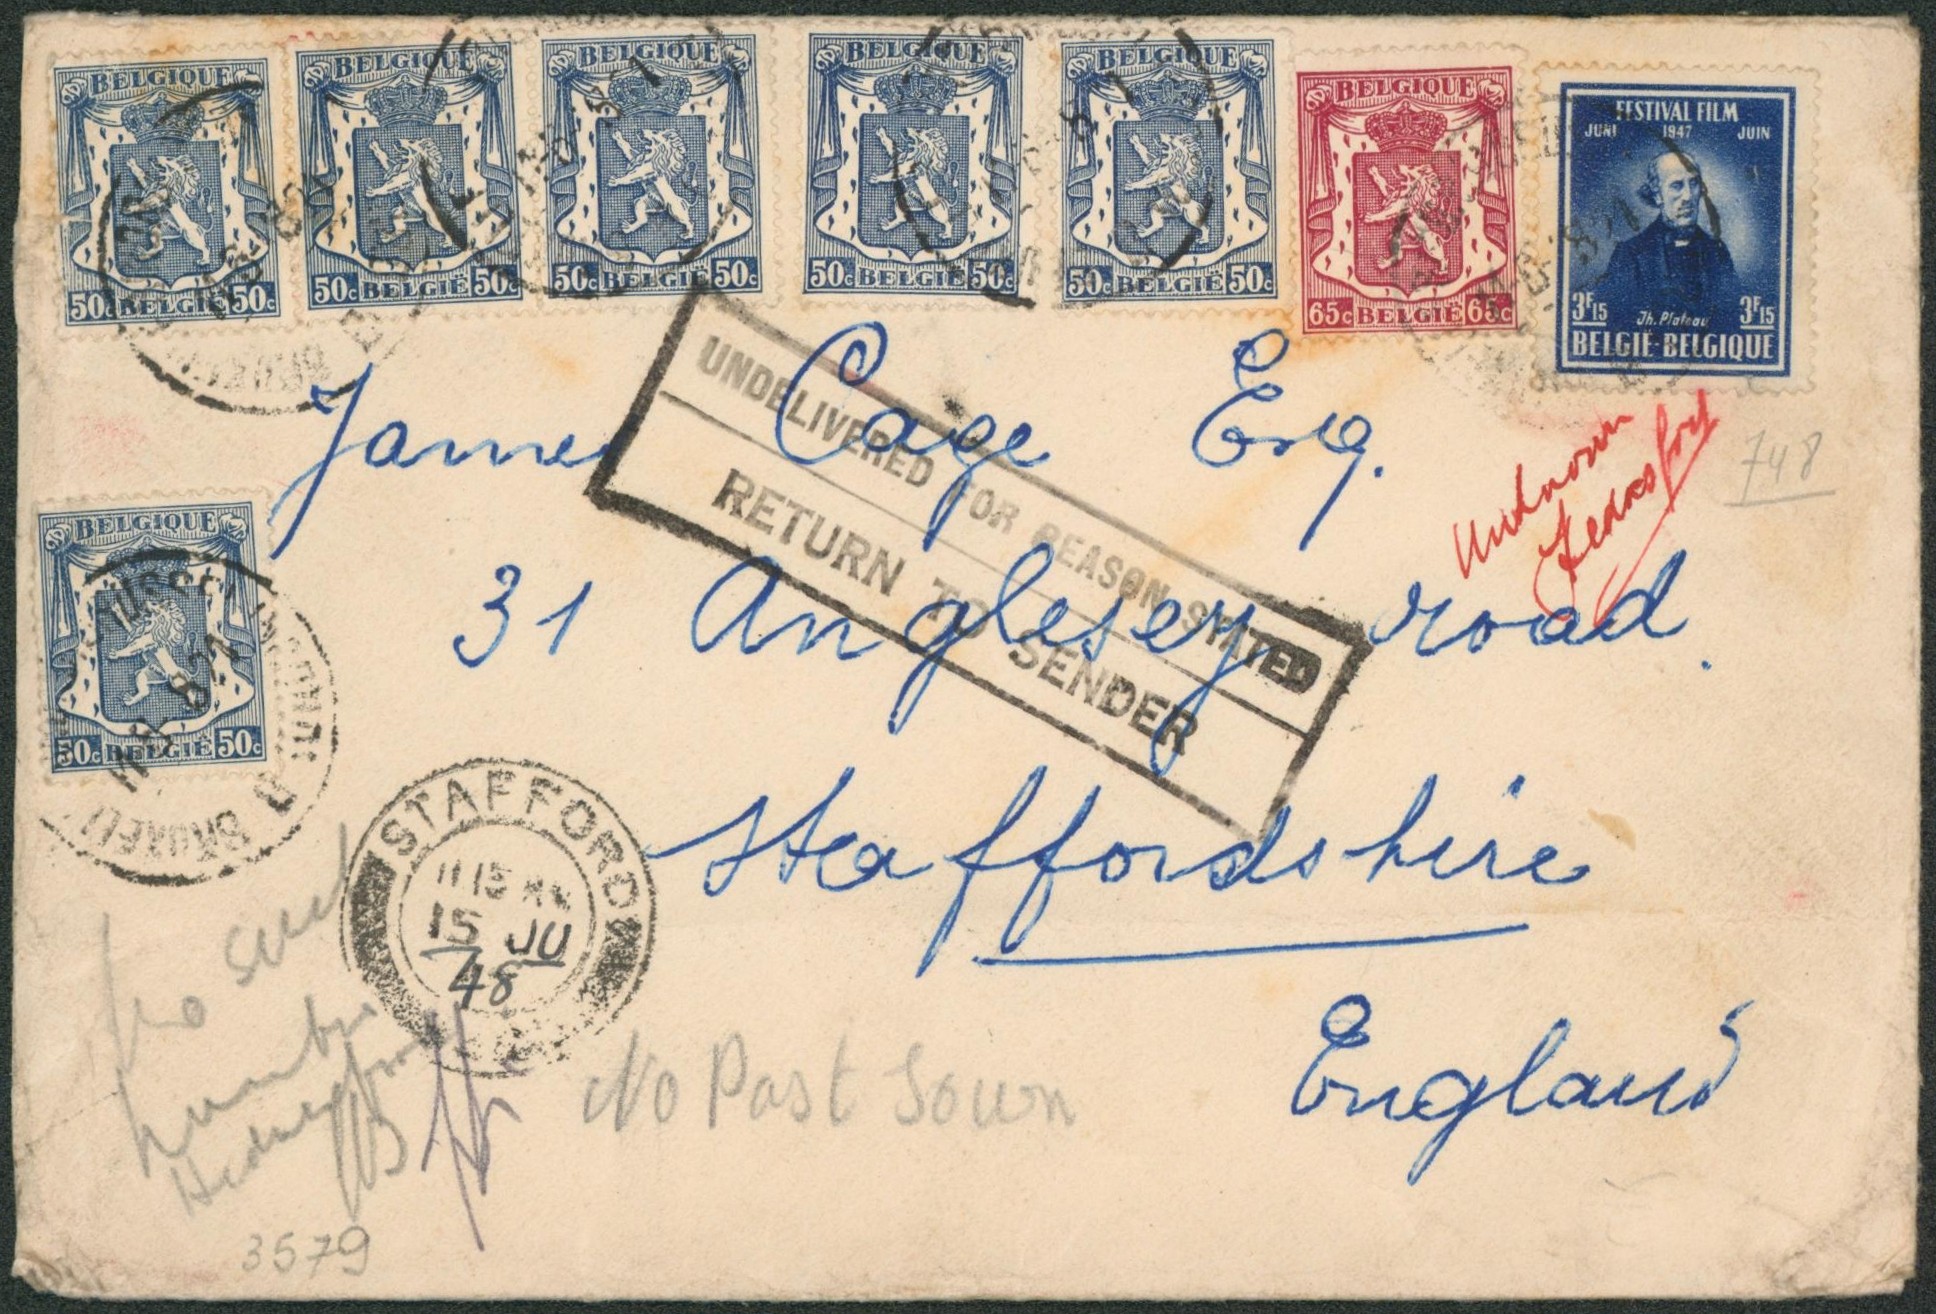 BELGIQUE
50c BELGIË 50c
BELGIQUE
50c BELGIË 50c
BELGIQUE
50c BELGIË 50c
BELGIQUE
50c BELGIË 50c
BELGIQUE
50c BELGIË 50c
BELGIQUE
65c BELGIË 65c
FESTIVAL FILM
JUNI 1947 JUIN
3F15 Jh. Plateau 3F15
BELGIË-BELGIQUE
UNDELIVERED FOR REASON STATED
RETURN TO SENDER
James Cage Esq.
31 Anglesey road.
Staffordshire
England
Unknown
748
BELGIQUE
50c BELGIË 50c
STAFFORD
11 15 AM
15 JU
48
No such
number
No Post Town
3579